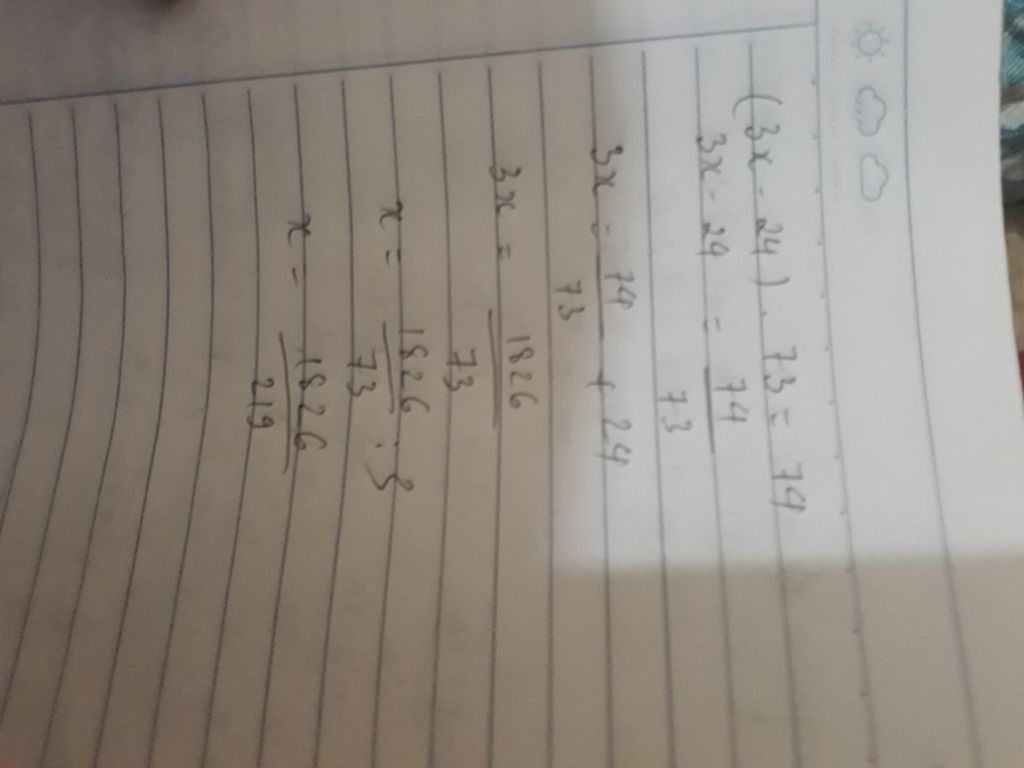 (3x - 24) . 73 = 74
3x - 24 = 74/73
3x = 74/73 + 24
3x = 1826/73
x = 1826/73 : 3
x = 1826/219